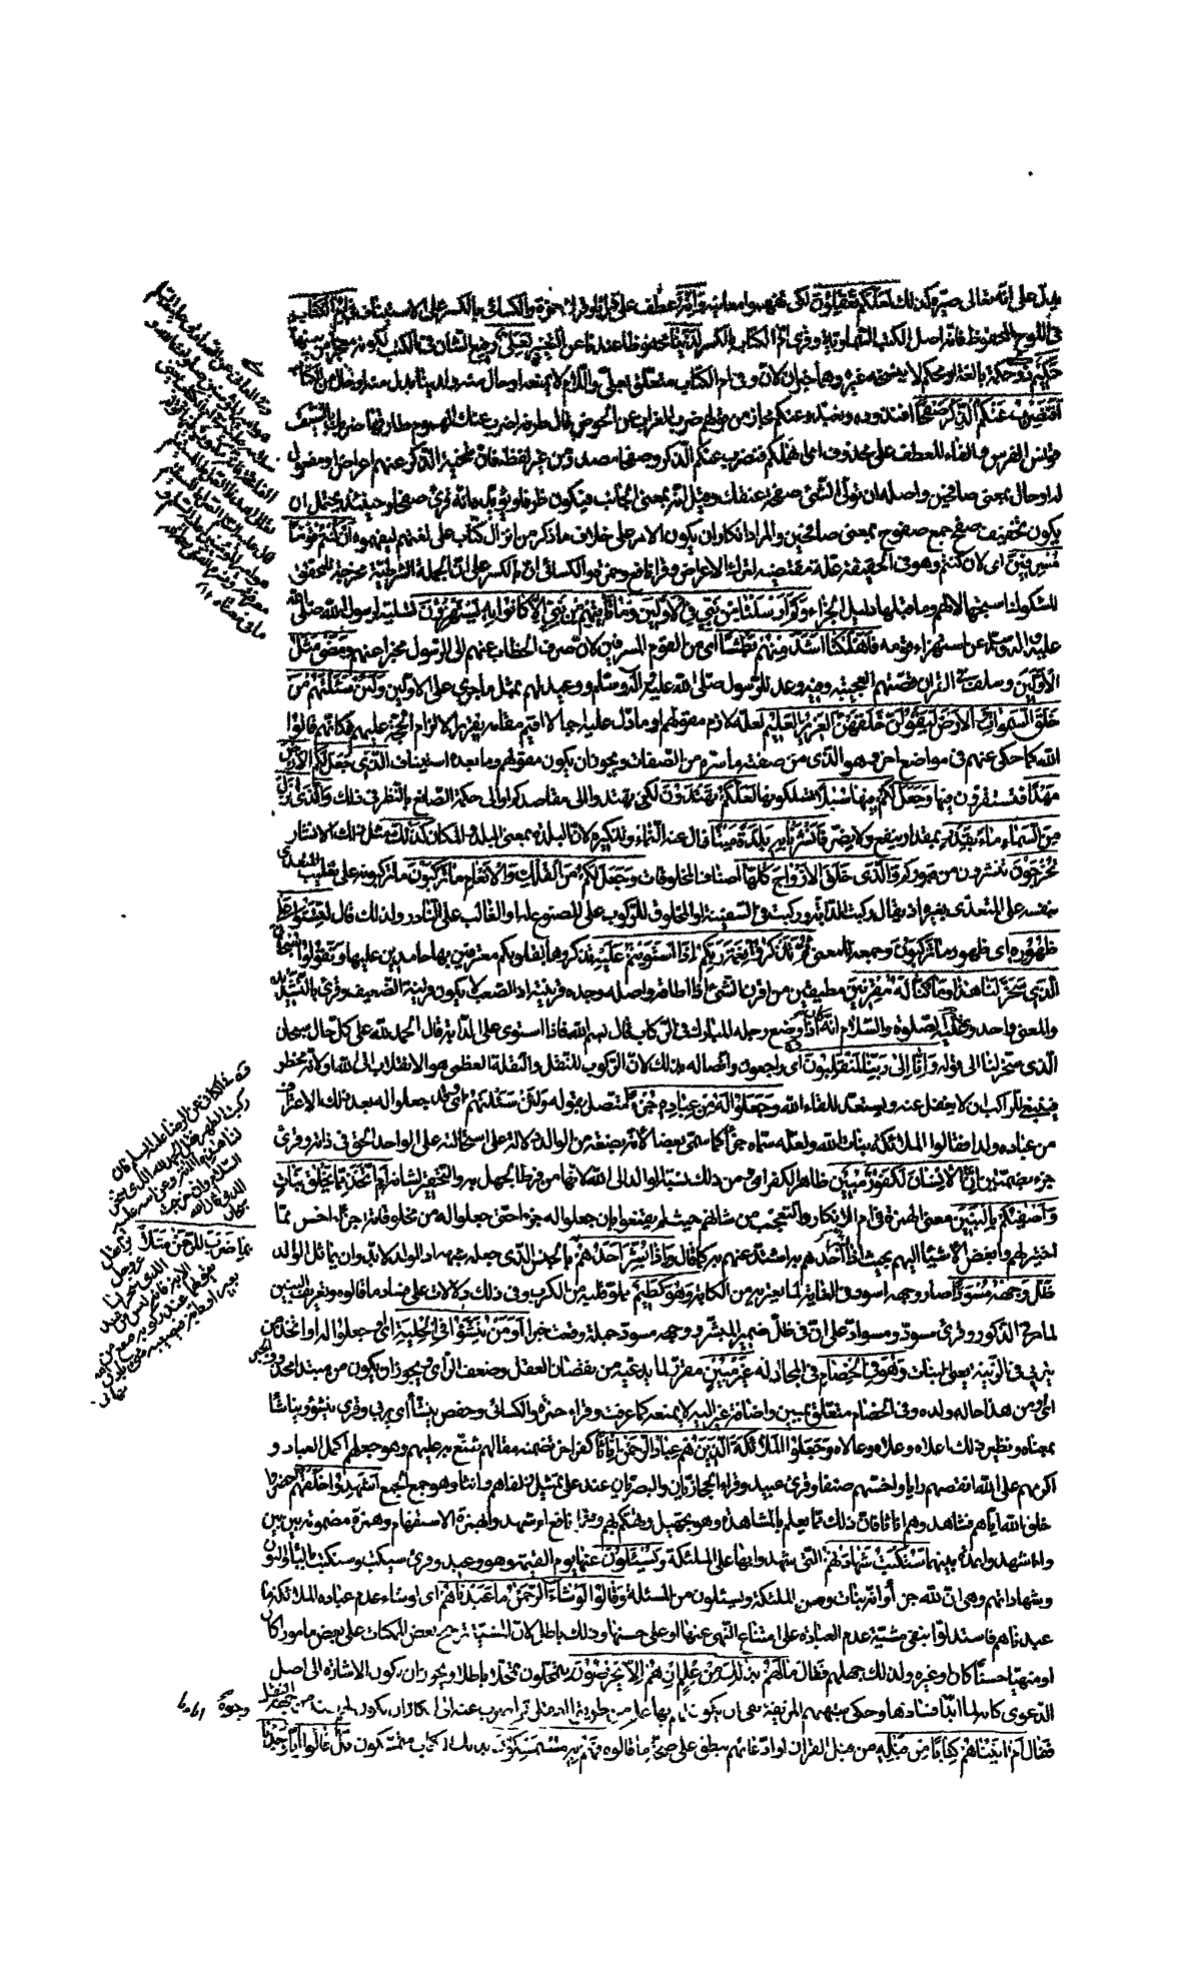 يدل على انه تعالى صيره كذلك لعلكم تعقلون لكى تفهموا معانيه وانه عطف على انا وقرأ حمزة والكسائى بالكسر على الاستيناف فى ام الكتاب
فى اللوح المحفوظ فانه اصل الكتب السماوية وقرئ ام الكتاب بالكسر لدينا محفوظا عندنا عن التغيير لعلى رفيع الشان فى الكتب لكونه معجزا من بينها
حكيم ذو حكمة بالغة او محكم لا ينسخه غيره وهما خبران لان وفى ام الكتاب متعلق بعلى واللام لا يمنعه او حال منه ولدينا بدل منه او حال من الكتاب
افنضرب عنكم الذكر صفحا افنذوده ونبعده عنكم مجاز من قولهم ضرب الغرائب عن الحوض قال طرفة اضرب عنك الهموم طارقها ضربك بالسيف
قونس الفرس والفاء للعطف على محذوف اى انهملكم فنضرب عنكم الذكر وصفحا مصدر من غير لفظه فان تنحية الذكر عنهم اعراض او مفعول
له او حال بمعنى صافحين واصله ان تولى الشئ صفحة عنقك وقيل انه بمعنى الجانب فيكون ظرفا ويؤيده انه قرئ صفحا وحينئذ يحتمل ان
يكون تخفيف صفح جمع صفوح بمعنى صافحين والمراد انكار ان يكون الامر على خلاف ما ذكر من انزال كتاب على لغتهم ليفهموه ان كنتم قوما
مسرفين اى لان كنتم وهو فى الحقيقة علة مقتضية لترك الاعراض وقرأ نافع وحمزة والكسائى ان بالكسر على ان الجملة الشرطية مخرجة للمحقق
للشكوك استجهالا لهم وما قبلها دليل الجزاء وكم ارسلنا من نبى فى الاولين وما يأتيهم من نبى الا كانوا به يستهزؤن تسلية لرسول الله صلى الله
عليه واله وسلم عن استهزاء قومه فاهلكنا اشد منهم بطشا اى من القوم المسرفين لان صرف الخطاب عنهم الى الرسول مخبرا عنهم ومضى مثل
الاولين وسلف فى القران قصتهم العجيبة وفيه وعد للرسول صلى الله عليه واله وسلم ووعيد لهم بمثل ما جرى على الاولين ولئن سئلتهم من
خلق السموات والارض ليقولن خلقهن العزيز العليم لعله لازم مقولهم او ما دل عليه اجمالا اقيم مقامه تقريرا لالزام الحجة عليهم فكانهم قالوا
الله كما حكى عنهم فى مواضع اخر وهو الذى من صفته ما سرد من الصفات ويجوز ان يكون مقولهم وما بعده استيناف الذى جعل لكم الارض
مهدا فتستقرون فيها وجعل لكم فيها سبلا تسلكونها لعلكم تهتدون لكى تهتدوا الى مقاصدكم او الى حكمة الصانع بالنظر فى ذلك والذى نزل
من السماء ماء بقدر بمقدار ينفع ولا يضر فانشرنا به بلدة ميتا زال عنه النماء وتذكيره لان البلدة بمعنى البلد والمكان كذلك مثل ذلك الانشار
تخرجون تنشرون من قبوركم والذى خلق الازواج كلها اصناف المخلوقات وجعل لكم من الفلك والانعام ما تركبون ما تركبونه على تغليب المتعدى
بنفسه على المتعدى بغيره اذ يقال ركبت الدابة وركبت فى السفينة او المخلوق للركوب على المصنوع له او الغالب على النادر ولذلك قال لتستووا على
ظهوره اى ظهور ما تركبون وجمعه للمعنى ثم تذكروا نعمة ربكم اذا استويتم عليه تذكروها بقلوبكم معترفين بها حامدين عليها وتقولوا سبحان
الذى سخر لنا هذا وما كنا له مقرنين مطيقين من اقرن الشئ اذا اطاقه واصله وجده قرينه اذ الصعب لا يكون قرينة الضعيف وقرئ بالتشديد
والمعنى واحد وعنه عليه الصلوة والسلام انه كان اذا وضع رجله المبارك فى الركاب قال بسم الله فاذا استوى على الدابة قال الحمد لله على كل حال سبحان
الذى سخر لنا الى قوله وانا الى ربنا لمنقلبون اى راجعون واتصاله بذلك لان الركوب للتنقل والنقلة العظمى هو الانقلاب الى الله او لانه مخطر
فينبغى للراكب ان لا يغفل عنه ويستعد للقاء الله وجعلوا له من عباده جزءا متصل بقوله ولئن سئلتهم اى وقد جعلوا له بعد ذلك الاعتراف
من عباده ولدا فقالوا الملائكة بنات الله ولعله سماه جزءا كما سمى بعضا لانه بضعة من الوالد دلالة على استحالته على الواحد الحق فى ذاته وقرئ
جزء بضمتين ان الانسان لكفور مبين ظاهر الكفران ومن ذلك نسبة الولد الى الله لانها من فرط الجهل به والتحقير لشانه ام اتخذ مما يخلق بنات
واصفيكم بالبنين معنى الهمزة فى ام الانكار والتعجب من شانهم حيث لم يقنعوا بان جعلوا له جزءا حتى جعلوا له من مخلوقاته جزءا اخس مما
اختير لهم وابغض الاشياء اليهم بحيث اذا بشر احدهم به اشتد غمه به كما قال واذا بشر احدهم بما ضرب للرحمن مثلا بالجنس الذى جعله له شبها اذ الولد لا بد وان يماثل الوالد
ظل وجهه مسودا صار وجهه اسود فى الغاية لما يعتريه من الكابة وهو كظيم مملو قلبه من الكرب وفى ذلك دلالات على فساد ما قالوه وتعريف البنين
لما مر فى الذكور وقرئ مسود ومسواد على ان فى ظل ضمير المبشر ووجهه مسود جملة وقعت خبرا او من ينشؤا فى الحلية اى او جعلوا له او اتخذ من
يتربى فى الزينة يعنى البنات وهو فى الخصام فى المجادلة غير مبين مقرر لما يدعيه من نقصان العقل وضعف الرأى ويجوز ان يكون من مبتدأ محذوف الخبر
اى او من هذا حاله ولده وفى الخصام متعلق بمبين واضافة غير اليه لا يمنعه كما عرفت وقرأ حمزة والكسائى وحفص ينشأ اى يربى وقرئ ينشؤ ويناشأ
بمعناه ونظير ذلك اعلاه وعلاه وعالاه وجعلوا الملائكة الذين هم عباد الرحمن اناثا كفر اخر تضمنه مقالهم شنع به عليهم وهو جعلهم اكمل العباد و
اكرمهم على الله انقصهم رأيا واخسهم صنفا وقرئ عبيد وقرأ الحجازيان والبصريان عند على تمثيل زلفاهم وانثا وهو جمع الجمع اشهدوا خلقهم احضروا
خلق الله اياهم فشاهدوهم اناثا فان ذلك مما يعلم بالمشاهدة وهو تجهيل وتهكم بهم وقرأ نافع ءاشهدوا بهمزة الاستفهام وهمزة مضمومة بين بين
وءاشهدوا بمدة بينهما ستكتب شهادتهم التى شهدوا بها على الملئكة ويسئلون عنها يوم القيمة وهو وعيد وقرئ سيكتب وسنكتب بالياء والنون
وشهاداتهم وهى ان لله جزءا وان له بنات وهن الملئكة ويساءلون من المساءلة وقالوا لو شاء الرحمن ما عبدناهم اى لو شاء عدم عبادة الملائكة ما
عبدناهم فاستدلوا بنفى مشية عدم العبادة على امتناع النهى عنها او على حسنها وذلك باطل لان المشية ترجح بعض الممكنات على بعض مامورا كان
او منهيا حسنا كان او غيره ولذلك جهلهم فقال ما لهم بذلك من علم ان هم الا يخرصون يتمحلون تمحلا باطلا ويجوز ان يكون الاشارة الى اصل
الدعوى كانه لما ابدى وجوه فسادها وحكى شبهتهم المزيفة نفى ان يكون لهم بها علم من طريق العقل ثم اضرب عنه الى انكار ان يكون لهم سند من جهة النقل
فقال ام اتيناهم كتابا من قبله من قبل القران او ادعائهم ينطق على صحة ما قالوه فهم به مستمسكون بذلك الكتاب متمسكون بل قالوا انا وجدنا
بما ضرب للرحمن مثلا